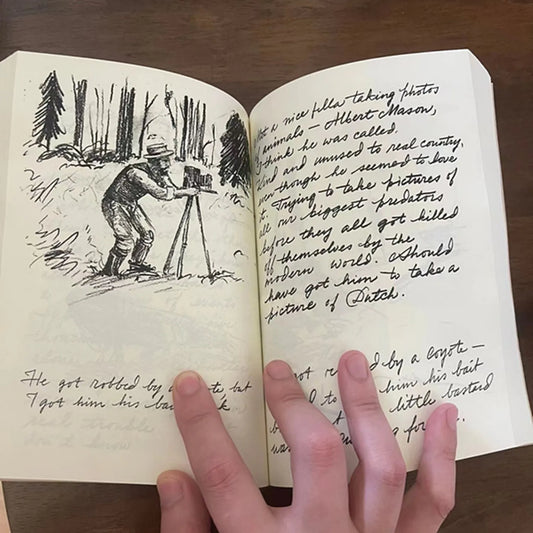 He got robbed by a coyote, but
I got him his back
a nice fella taking photos
animals – Albert Mason,
I think he was called.
Kind and unused to real country,
even though he seemed to love
it. Trying to take pictures of
all our biggest predators
before they all got killed
off themselves by the
modern world. Should
have got him to take a
picture of Dutch.
got by a coyote –
him his bait
little bastard